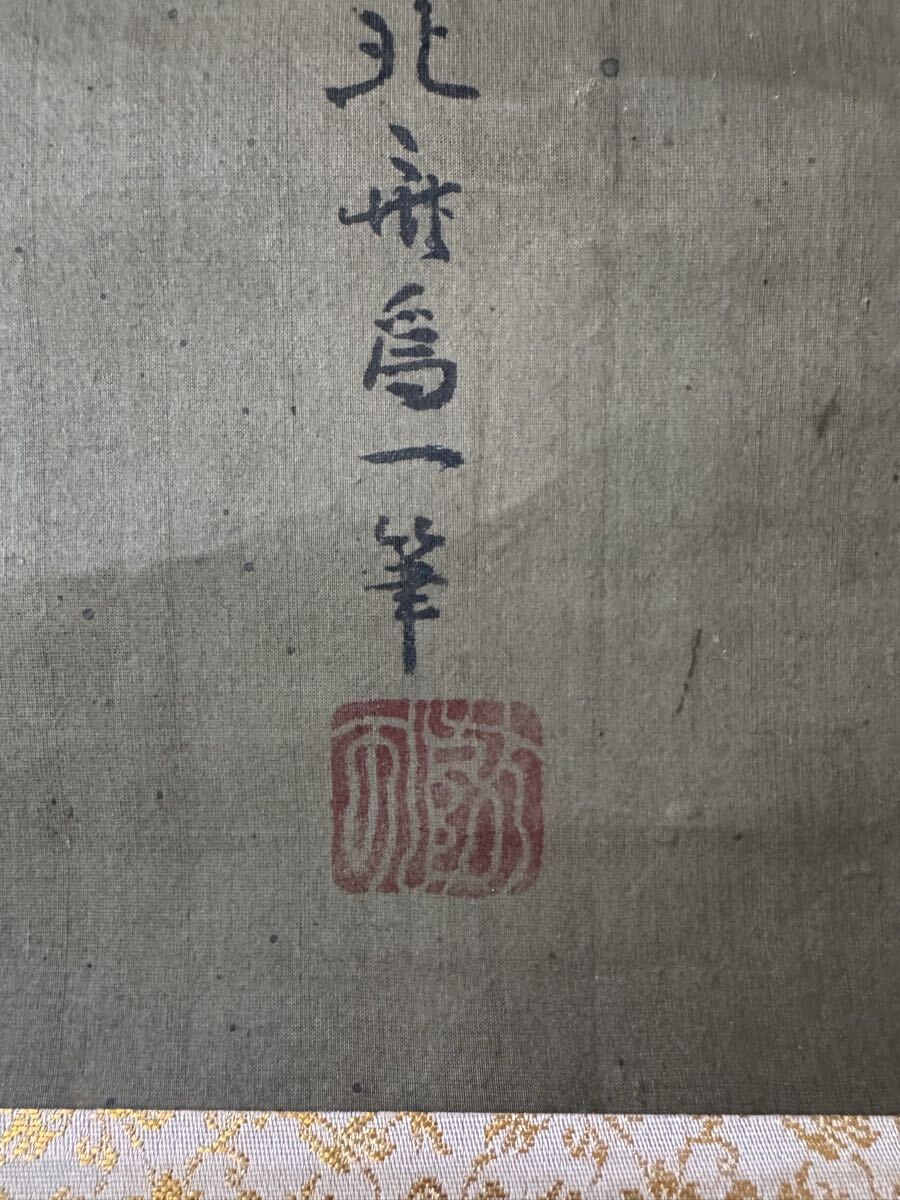 北斎爲一筆